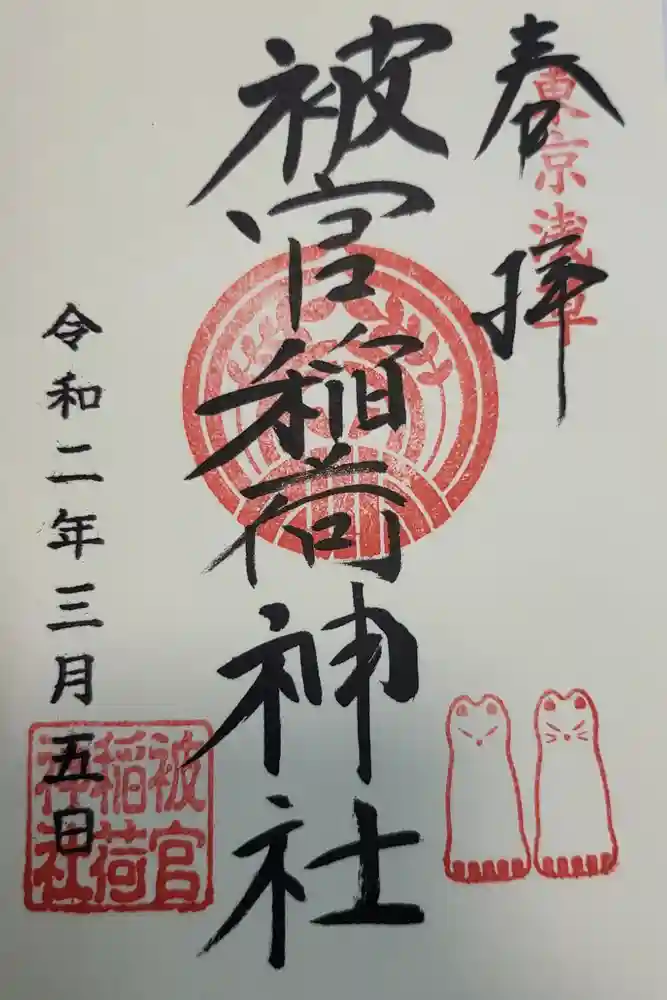 奉拝
東京浅草
被官稲荷神社
令和二年三月五日
被官
稲荷
神社